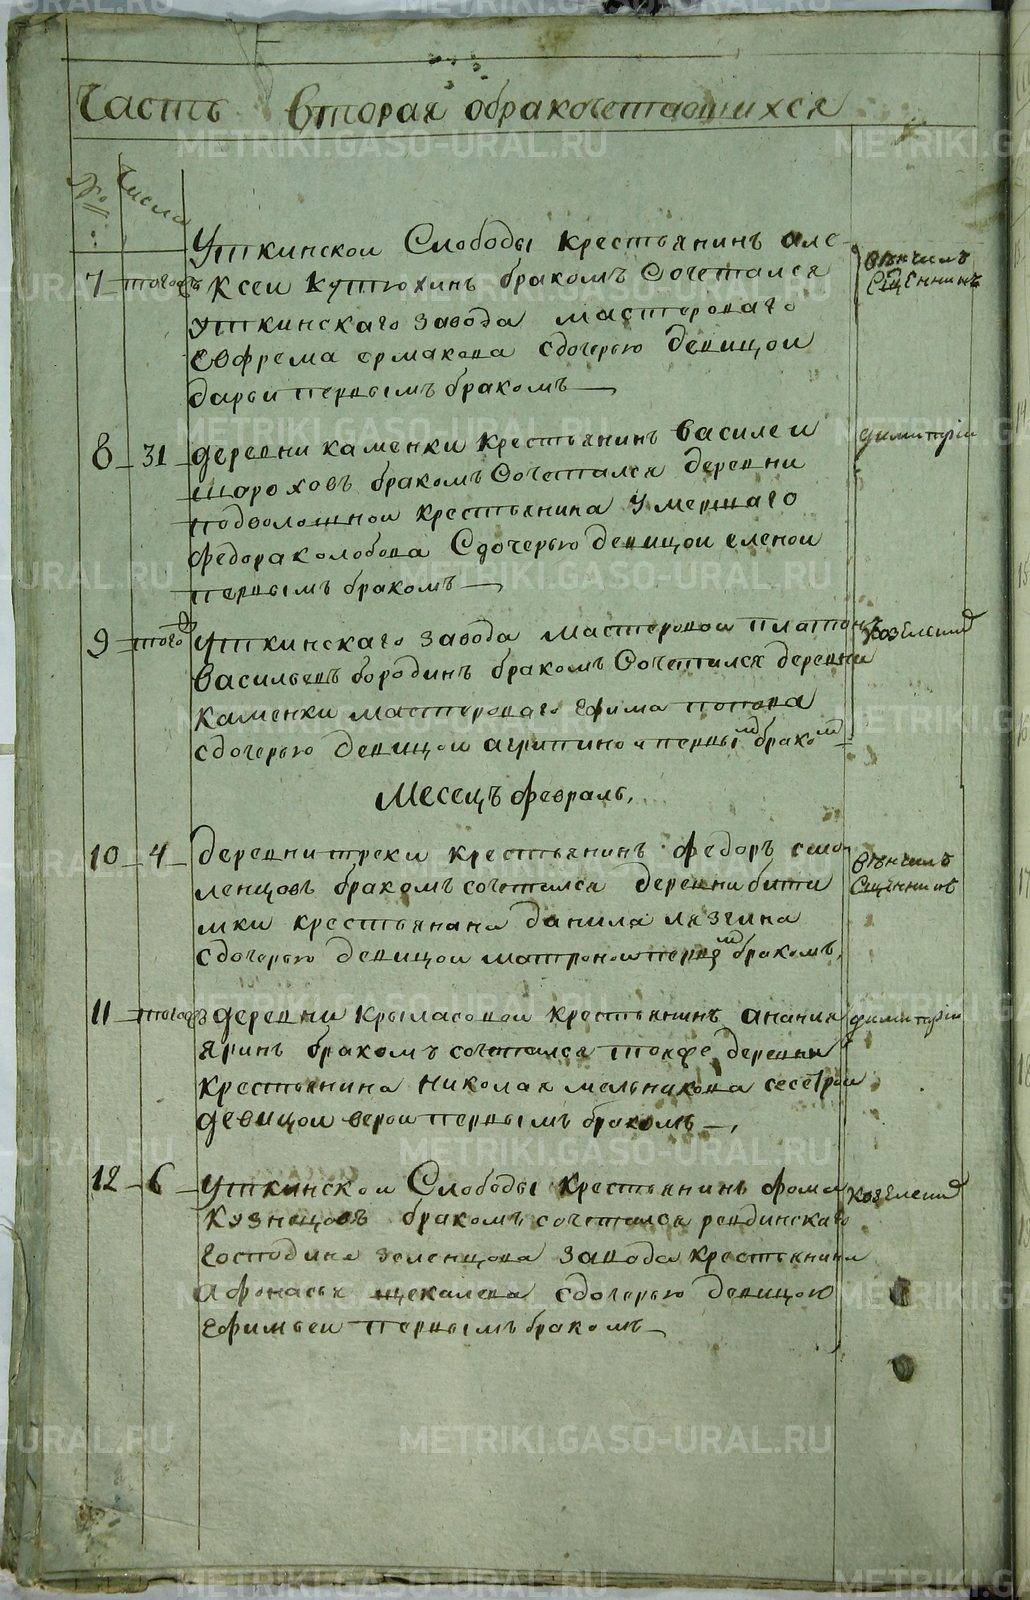 Часть вторая обракочетавшихся
№
Числа
Уткинскои Слободы крестьянинъ але-
7 тогожъ ксеи Кутюхинъ бракомъ Сочетался
уткинскаго завода мастероваго
Евфрема ермакова сдочерью девицои
дарьи первымъ бракомъ
Венчалъ
Сщенникъ
8 31 деревни каменки крестьянинъ василеи
шороховъ бракомъ Сочетался деревни
подволошнои крестьянина Умершаго
федора колобова Сдочерью девицои еленои
первымъ бракомъ
димитріи
9 того уткинскаго завода мастеровои платонъ
васильевъ бородинъ бракомъ Сочетался деревни
каменки мастероваго Ефима попова
сдочерью девицои агрипинои первымъ бракомъ
козелский
Месецъ февраль,
10 4 деревни треки крестьянинъ федоръ смо
ленцовъ бракомъ сочетался деревни бити
мки крестьянина данила лязгина
сдочерью девицои матронои первымъ бракомъ,
Венчалъ
Сщенникъ
11 тогожъ деревни Крыласовои крестьянинъ анания
яринъ бракомъ сочетался тоеже деревни
крестьянина николая мельникова сестрои
девицои верои первымъ бракомъ
димитріи
12 6 Уткинскои Слободы крестьянинъ фома
Кузнецовъ бракомъ сочетался ревдинскаго
господина зеленцова завода крестьянина
афонасья щекалева сдочерью девицою
Ефимьеи первымъ бракомъ
козелский
METRIKI.GASO-URAL.RU